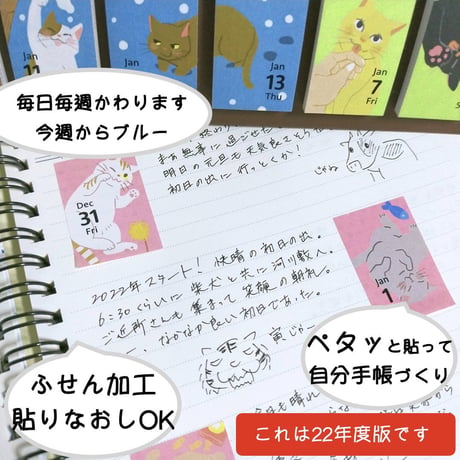 Jan
11
Jan
Jan
13
Thu
Jan
7
Fri
毎日毎週かわります
今週からブルー
明日の元旦も天気良くそうだ
初日の出に行っとくか!
Dec
31
Fri
2022年スタート! 快晴の初日の出。
6:30くらいに柴犬と共に河川敷へ。
ご近所さんも集まって笑顔の朝礼。
なかなか良い初日であった。
寅じゃー
Jan
1
ペタッと貼って
自分手帳づくり
ふせん加工
貼りなおしOK
これは22年度版です